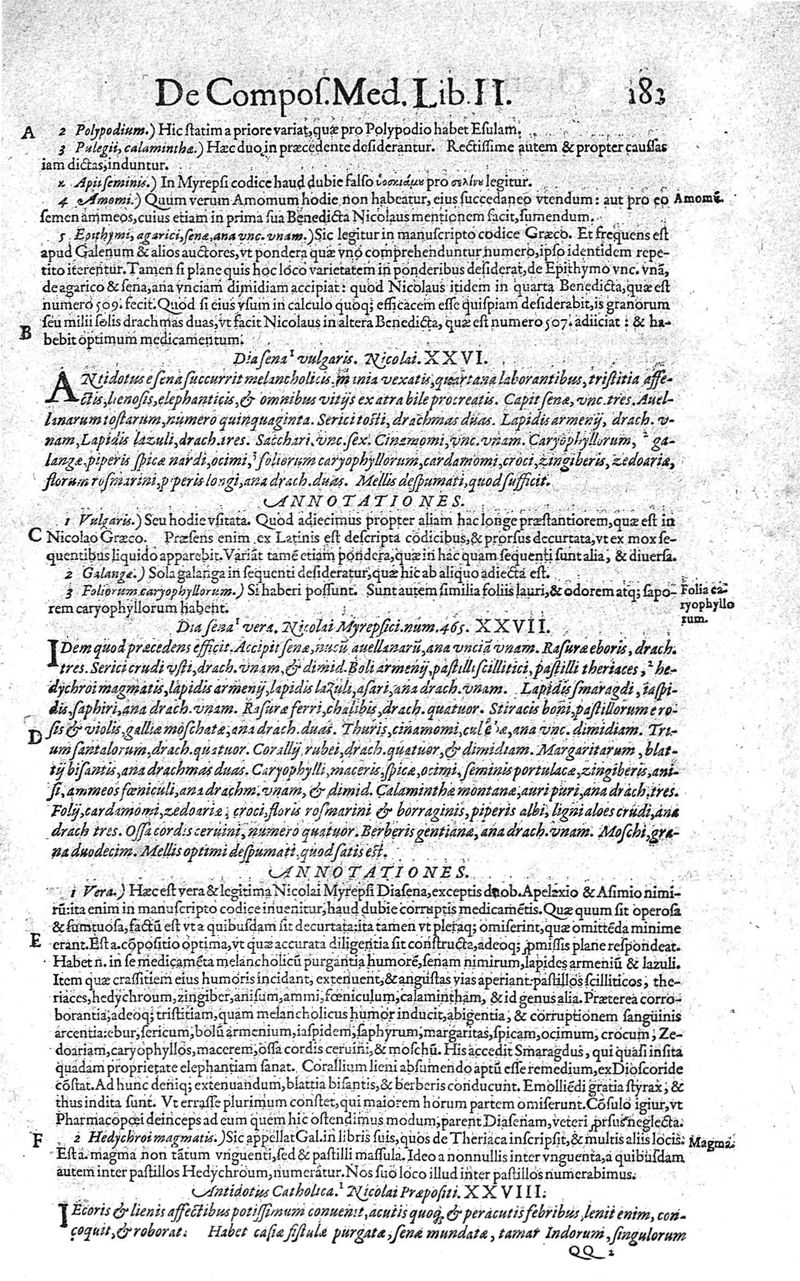 De Compos. Med. Lib. II. 183
A 2 Polypodium.) Hic statim a priore variat, quæ pro Polypodio habet Esulam.
3 Pulegij, calaminthæ.) Hæc duo in præcedente desiderantur. Rectissime autem & propter caussas
iam dictas, induntur.
x Apij seminis.) In Myrepsi codice haud dubie falso ὑοσκιάμου pro σελίνου legitur.
4 Amomi.) Quum verum Amomum hodie non habeatur, eius succedaneo vtendum: aut pro eo Amomũ.
semen ammeos, cuius etiam in prima sua Benedicta Nicolaus mentionem facit, sumendum.
5 Epithymi, agarici, senæ, ana vnc. vnam.) Sic legitur in manuscripto codice Græco. Et frequens est
apud Galenum & alios auctores, vt pondera quæ vno comprehenduntur numero, ipso identidem repe-
tito iterentur. Tamen si plane quis hoc loco varietatem in ponderibus desiderat, de Epithymo vnc. vnã,
de agarico & sena, ana vnciam dimidiam accipiat: quod Nicolaus itidem in quarta Benedicta, quæ est
numero 509. fecit. Quod si eius vsum in calculo quoq; efficacem esse quispiam desiderabit, is granorum
B seu milii solis drachmas duas, vt facit Nicolaus in altera Benedicta, quæ est numero 507. adiiciat: & ha-
bebit optimum medicamentum.
Dia sena¹ vulgaris. Nicolai. XXVI.
ANtidotus e sena succurrit melancholicis, mania vexatis, quartana laborantibus, tristitia affe-
ctis, lienosis, elephanticis, & omnibus vitijs ex atra bile procreatis. Capit senæ, vnc. tres. Auel-
lanarum tostarum, numero quinquaginta. Serici tosti, drachmas duas. Lapidis armenij, drach. v-
nam, Lapidis lazuli, drach. tres. Sacchari, vnc. sex. Cinamomi, vnc. vnam. Caryophyllorum, ² ga-
langæ, piperis, spicæ nardi, ocimi, ³ foliorum caryophyllorum, cardamomi, croci, zingiberis, zedoariæ,
florum rosmarini, piperis longi, ana drach. duas. Mellis despumati, quod sufficit.
ANNOTATIONES.
1 Vulgaris.) Seu hodie vsitata. Quod adiecimus propter aliam hac longe præstantiorem, quæ est in
C Nicolao Græco. Præsens enim ex Latinis est descripta codicibus, & prorsus decurtata, vt ex mox se-
quentibus liquido apparebit. Variãt tamẽ etiam pondera, quæ in hac quam sequenti sunt alia, & diuersa.
2 Galangæ.) Sola galanga in sequenti desideratur, quæ hic ab aliquo adiecta est.
3 Foliorum caryophyllorum.) Si haberi possunt. Sunt autem similia foliis lauri, & odorem atq; sapo- Folia ca-
rem caryophyllorum habent. ryophyllo
rum.
Dia sena¹ vera. Nicolai Myrepsici. num. 465. XXVII.
IDem quod præcedens efficit. Accipit senæ, nucũ auellanarũ, ana vnciã vnam. Rasuræ eboris, drach.
tres. Serici crudi vsti, drach. vnam, & dimid. Boli armenij, pastilli scillitici, pastilli theriaces, ² he-
dychroi magmatis, lapidis armenij, lapidis lazuli, asari, ana drach. vnam. Lapidis smaragdi, iaspi-
dis, saphiri, ana drach. vnam. Rasuræ ferri, chalibis, drach. quatuor. Stiracis boni, pastillorum e ro-
D sis & violis, galliæ moschatæ, ana drach. duas. Thuris, cinamomi, ana vnc. dimidiam. Tri-
um santalorum, drach. quatuor. Corallij rubei, drach. quatuor, & dimidiam. Margaritarum, blat-
tij bisantis, ana drachmas duas. Caryophylli, maceris, spicæ, ocimi, seminis portulacæ, zingiberis, ani-
si, ammeos fœniculi, ana drachm. vnam, & dimid. Calaminthæ montanæ, auri puri, ana drach. tres.
Folij, cardamomi, zedoariæ, croci, floris rosmarini & borraginis, piperis albi, ligni aloes crudi, ana
drach tres. Ossa cordis ceruini, numero quatuor. Berberis gentianæ, ana drach. vnam. Moschi, gra-
na duodecim. Mellis optimi despumati, quod satis est.
ANNOTATIONES.
1 Vera.) Hæc est vera & legitima Nicolai Myrepsi Diasena, exceptis duob. Apelaxio & Asimio nimi-
rũ: ita enim in manuscripto codice inuenitur, haud dubie corruptis medicamẽtis. Quæ quum sit operosa
& sumtuosa, factũ est vt a quibusdam sit decurtata: ita tamen vt pleraq; omiserint, quæ omittẽda minime
E erant. Est a. cõpositio optima, vt quæ accurata diligentia sit constructa, adeoq; ꝓmissis plane respondeat.
Habet n. in se medicamẽta melancholicũ purgantia humorẽ, senam nimirum, lapides armeniũ & lazuli.
Item quæ crassitiem eius humoris incidant, extenuent, & angustas vias aperiant: pastillos scilliticos, the-
riaces, hedychroum, zingiber, anisum, ammi, fœniculum, calamintham, & id genus alia. Præterea corro-
borantia; adeoq; tristitiam, quam melancholicus humor inducit, abigentia, & corruptionem sanguinis
arcentia: ebur, sericum, bolũ armenium, iaspidem, saphyrum, margaritas, spicam, ocimum, crocum, Ze-
doariam, caryophyllos, macerem, ossa cordis ceruini, & moschũ. His accedit Smaragdus, qui quasi insita
quadam proprietate elephantiam sanat. Corallium lieni absumendo aptũ esse remedium, ex Dioscoride
cõstat. Ad hunc deniq; extenuandum, blattia bisantis, & berberis conducunt. Emolliẽdi gratia styrax, &
thus indita sunt. Vt errasse plurimum constet, qui maiorem horum partem omiserunt. Cõsulo igiur, vt
Pharmacopœi deinceps ad eum quem hic ostendimus modum, parent Diasenam, veteri ꝓrsus neglecta.
F 2 Hedychroi magmatis.) Sic appellat Gal. in libris suis, quos de Theriaca inscripsit, & multis aliis locis. Magma.
Est a. magma non tãtum vnguenti, sed & pastilli massula. Ideo a nonnullis inter vnguenta, a quibusdam
autem inter pastillos Hedychroum, numeratur. Nos suo loco illud inter pastillos numerabimus.
Antidotus Catholica.¹ Nicolai Præpositi. XXVIII.
IEcoris & lienis affectibus potissimum conuenit, acutis quoq; & peracutis febribus, lenit enim, con-
coquit, & roborat. Habet casiæ fistulæ purgatæ, senæ mundatæ, tamar Indorum, singulorum
QQ 2